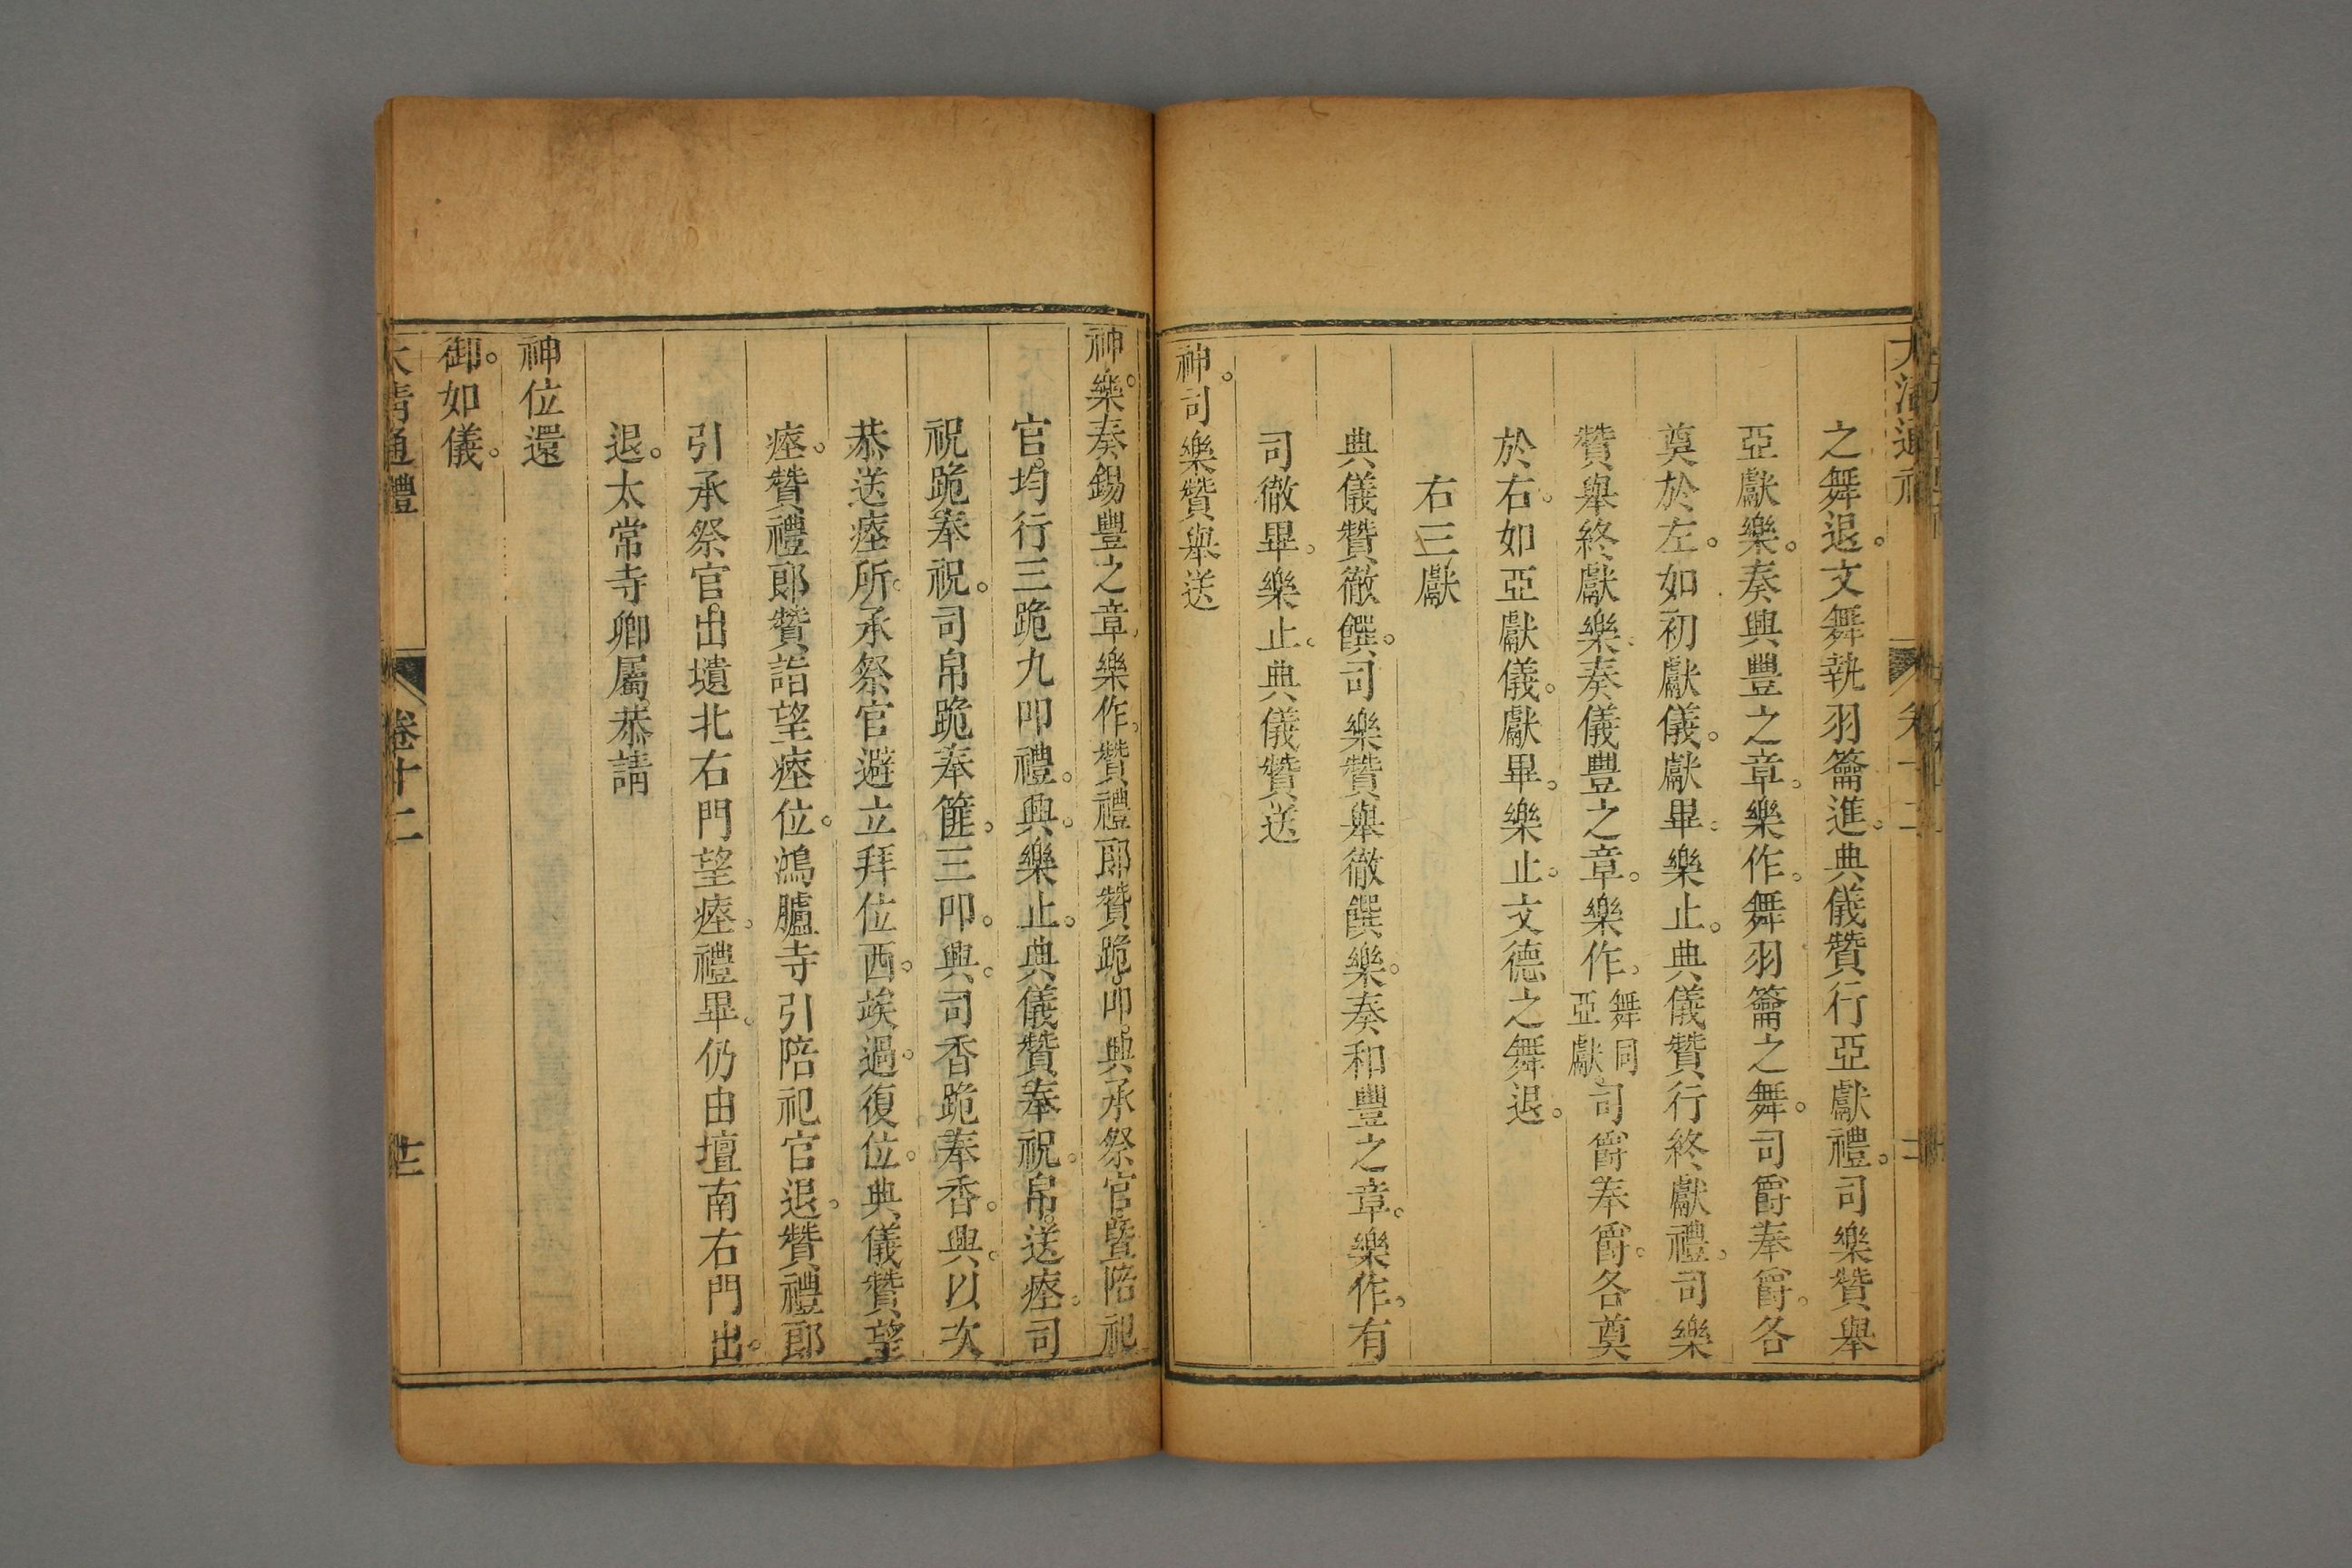 之舞退。文舞執羽籥進。典儀贊行亞獻禮。司樂贊舉
亞獻樂。奏興豐之章。樂作。舞羽籥之舞。司爵奉爵。各
奠於左。如初獻儀。獻畢。樂止。典儀贊行終獻禮。司樂
贊舉終獻樂。奏儀豐之章。樂作。舞同亞獻司爵奉爵。各奠
於右。如亞獻儀。獻畢。樂止。文德之舞退。
右三獻
典儀贊徹饌。司樂贊舉徹饌樂。奏和豐之章。樂作。有
司徹畢。樂止。典儀贊送
神。司樂贊舉送
神樂。奏錫豐之章。樂作。贊禮郎贊跪叩興。承祭官暨陪祀
官。均行三跪九叩禮。興。樂止。典儀贊奉祝。帛。送瘞。司
祝跪奉祝。司帛跪奉篚。三叩。興。司香跪奉香。興。以次
恭送瘞所。承祭官避立拜位西。俟過。復位。典儀贊望
瘞。贊禮郎贊詣望瘞位。鴻臚寺引陪祀官退。贊禮郎
引承祭官。出壝北右門望瘞。禮畢。仍由壇南右門出。
退。太常寺卿屬。恭請
神位還
御。如儀。
大清通禮
卷十二